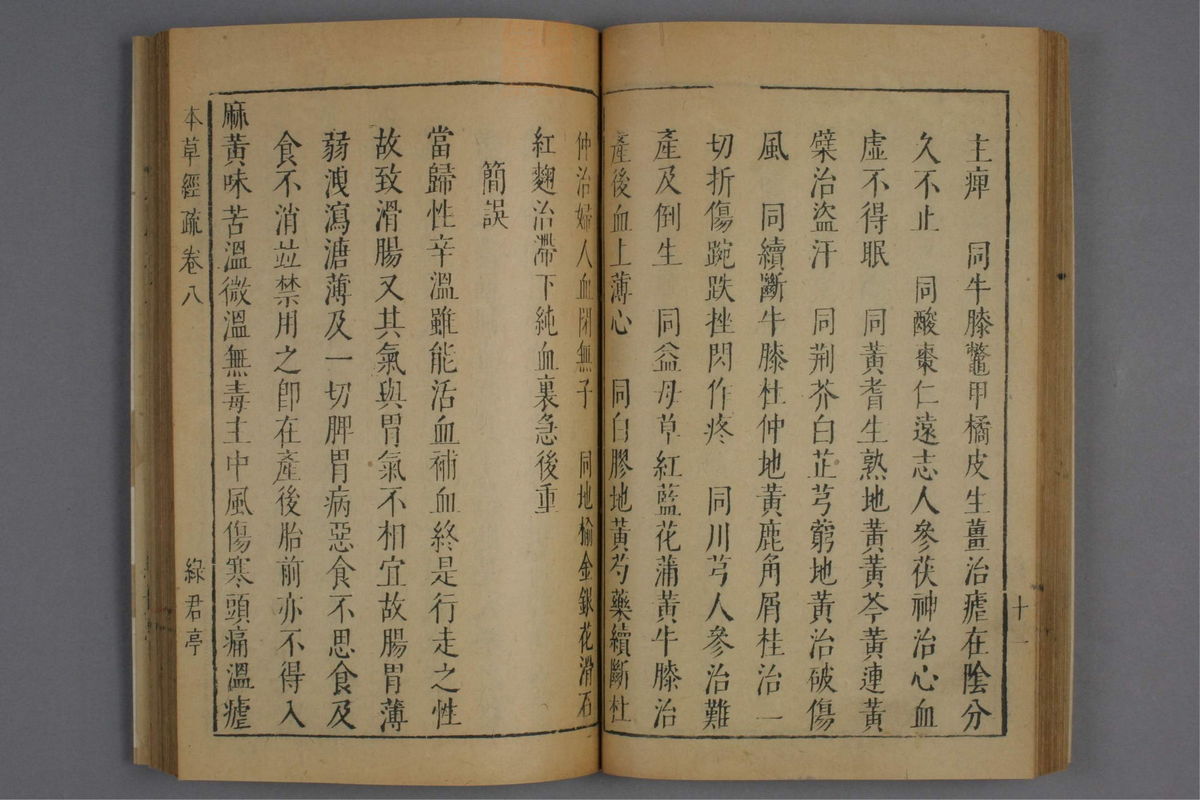 主痺　同牛膝鼈甲橘皮生薑治瘧在陰分
久不止　同酸棗仁遠志人參茯神治心血
虛不得眠　同黃耆生熟地黃黃芩黃連黃
檗治盜汗　同荆芥白芷芎藭地黃治破傷
風　同續斷牛膝杜仲地黃鹿角屑桂治一
切折傷踠跌挫閃作疼　同川芎人參治難
產及倒生　同益母草紅藍花蒲黃牛膝治
產後血上薄心　同白膠地黃芍藥續斷杜
十一
仲治婦人血閉無子　同地榆金銀花滑石
紅麴治滯下純血裏急後重
簡誤
當歸性辛溫雖能活血補血終是行走之性
故致滑腸又其氣與胃氣不相宜故腸胃薄
弱洩瀉溏薄及一切脾胃病惡食不思食及
食不消竝禁用之卽在產後胎前亦不得入
麻黃味苦溫微溫無毒主中風傷寒頭痛溫瘧
本草經疏卷八
綠君亭